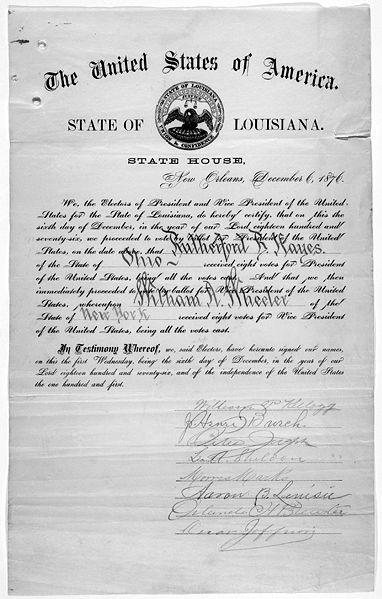 The United States of America.
STATE OF LOUISIANA.
STATE OF LOUISIANA
UNION & CONFIDENCE
STATE HOUSE,
New Orleans, December 6, 1876.
We, the Electors of President and Vice President of the United
States for the State of Louisiana, do hereby certify, that on this the
sixth day of December, in the year of our Lord eighteen hundred and
seventy-six, we proceeded to vote by ballot for President of the United
States, on the date that Rutherford B. Hayes
of the State of Ohio received eight votes for President
of the United States, being all the votes cast. And that we then
immediately proceeded to vote by ballot for Vice President of the United
States, whereupon William A. Wheeler of the
State of New York received eight votes for Vice President
of the United States, being all the votes cast.
In Testimony Whereof, we, said Electors, have hereunto signed our names,
on this the first Wednesday, being the sixth day of December, in the year of our
Lord eighteen hundred and seventy-six, and of the independence of the United States
the one hundred and first.
William P. Kellogg
J. Henri Burch
Peter Joseph
L. A. Sheldon
Morris Marks
Aaron B. Levisee
Orlando H. Brewster
Oscar Joffrion